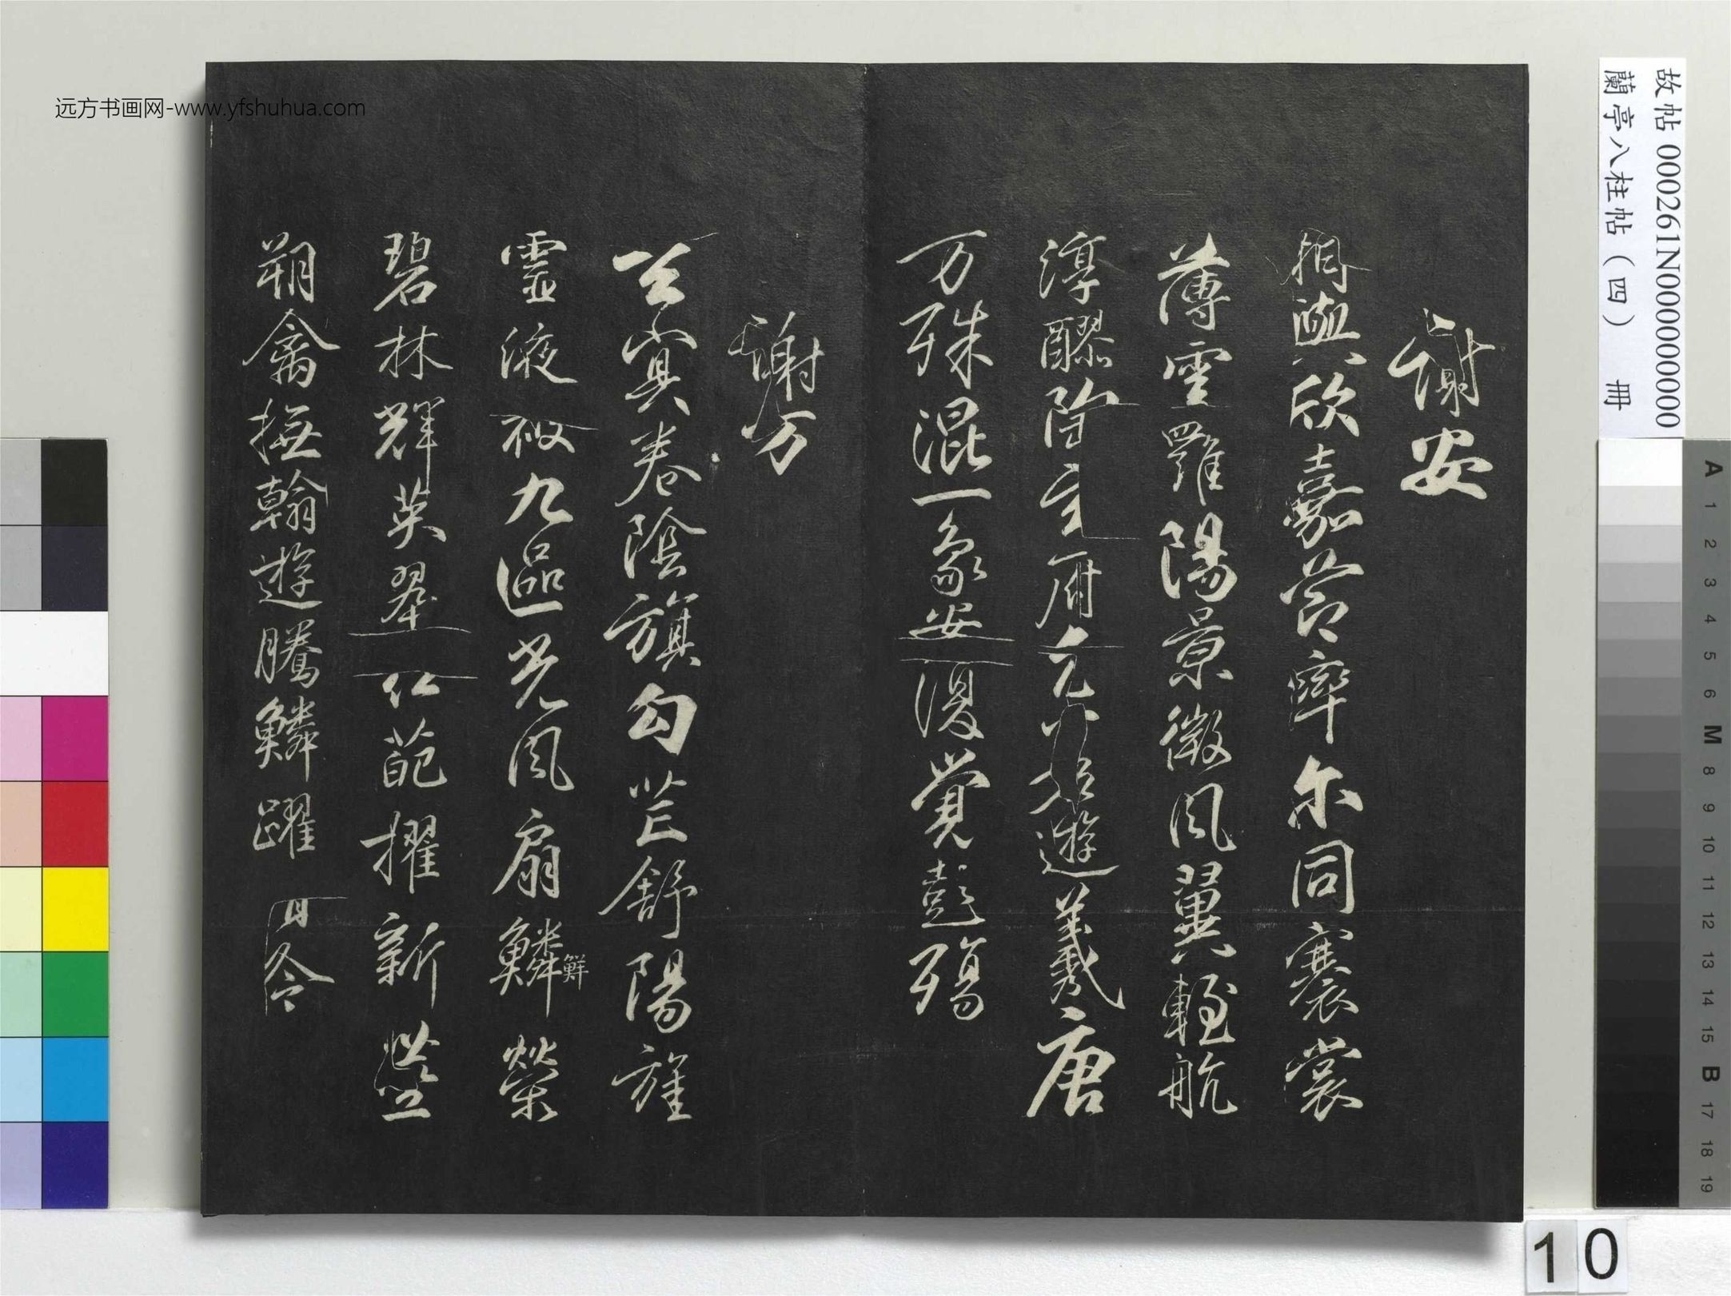 远方书画网-www.yfshuhua.com
故帖 000261N000000000
蘭亭八柱帖（四） 冊
謝安
相與欣嘉節率尔同褰裳
薄雲羅陽景微風翼輕航
淳醪陶玄府兀若遊羲唐
万殊混一象安復覺彭殤
謝万
玄冥卷陰旗勾芒舒陽旌
靈液被九區光風扇鱗鮮榮
碧林輝英翠紅葩擢新莖
翔禽撫翰遊騰鱗躍清泠
A 1 2 3 4 5 6 M 8 9 10 11 12 13 14 15 B 17 18 19
10